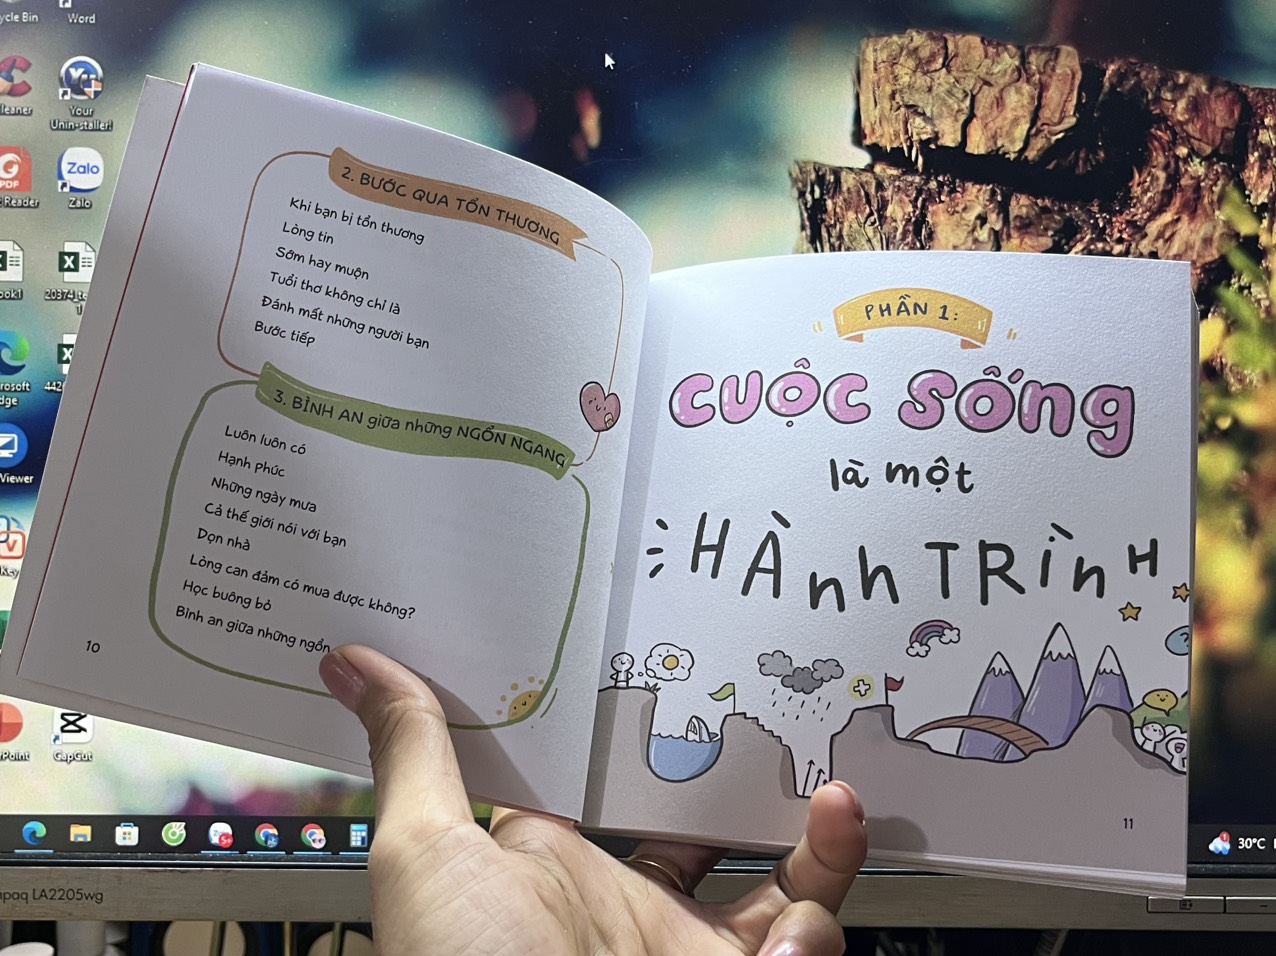 Word
Your
Unin-staller!
PDF
Reader
Zalo
Zalo
CapCut
LA2205wg
30°C
2. BƯỚC QUA TỔN THƯƠNG
Khi bạn bị tổn thương
Lòng tin
Sớm hay muộn
Tuổi thơ không chỉ là
Đánh mất những người bạn
Bước tiếp
3. BÌNH AN giữa những NGỔN NGANG
Luôn luôn có
Hạnh phúc
Những ngày mưa
Cả thế giới nói với bạn
Dọn nhà
Lòng can đảm có mua được không?
Học buông bỏ
Bình an giữa những ngổn
10
PHẦN 1:
CUỘC SỐNG
là một
HÀNH TRÌNH
11